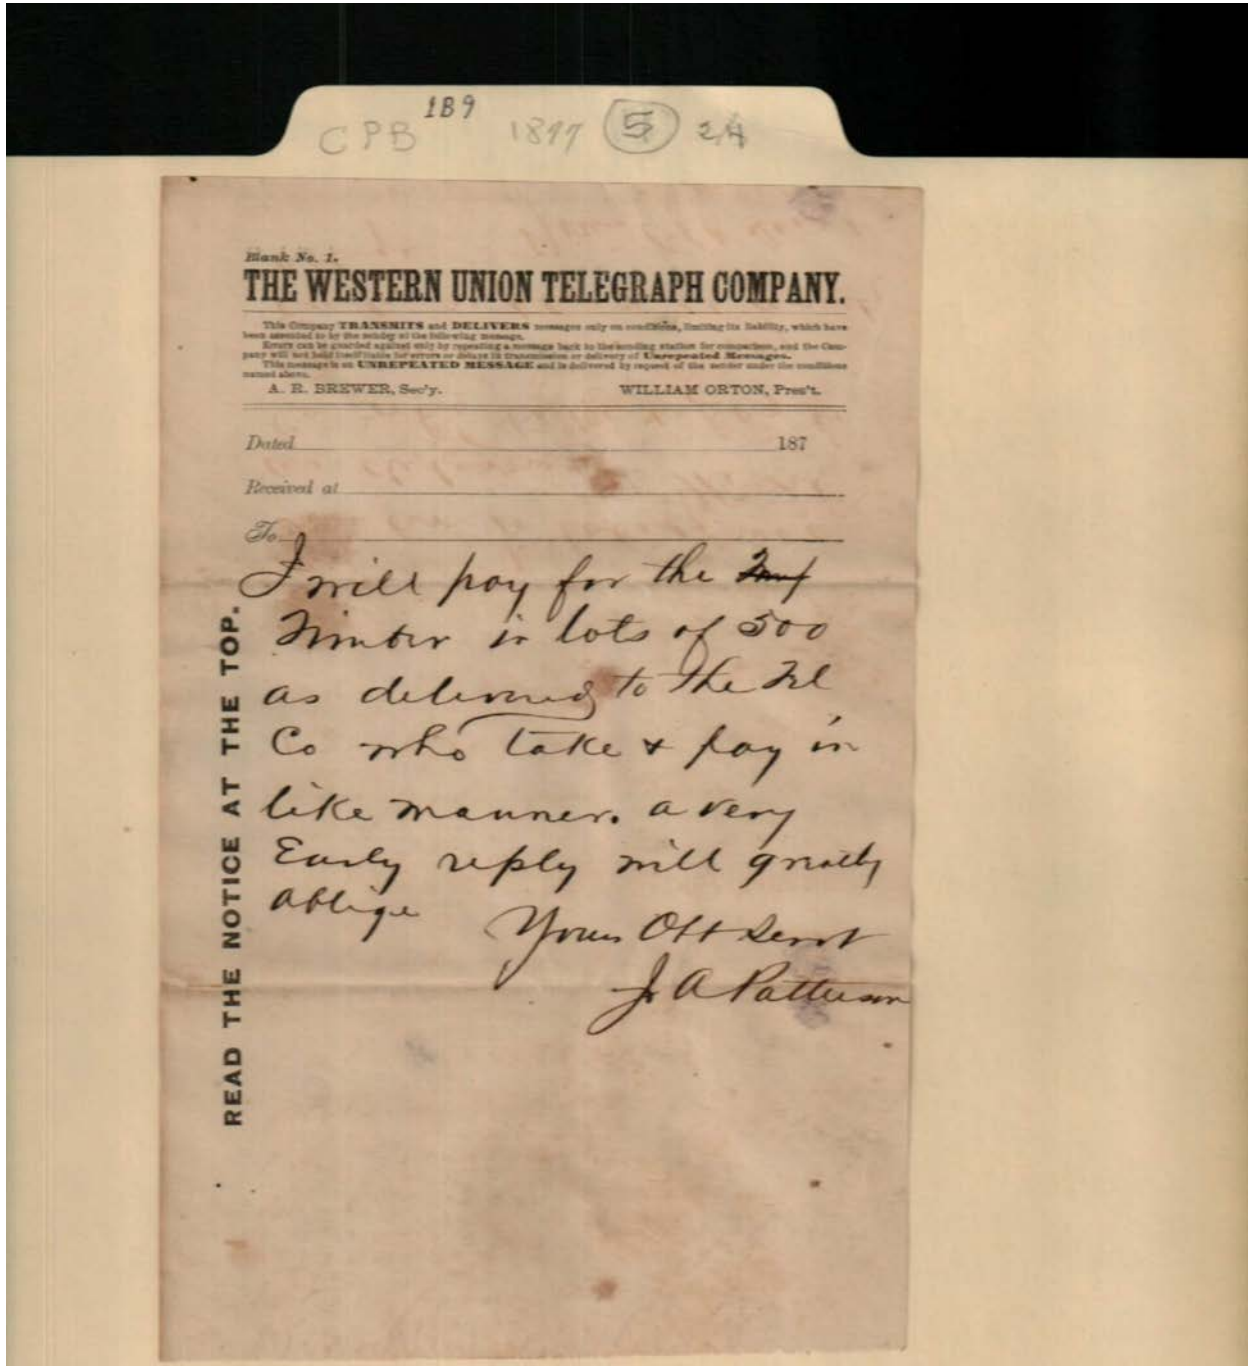 1B9
CPB 1877 5 24
Blank No. 1.
THE WESTERN UNION TELEGRAPH COMPANY.
This Company TRANSMITS and DELIVERS messages only on conditions, limiting its liability, which have
been assented to by the sender of the following message.
Errors can be guarded against only by repeating a message back to the sending station for comparison, and the Com-
pany will not hold itself liable for errors or delays in transmission or delivery of Unrepeated Messages.
This message is an UNREPEATED MESSAGE and is delivered by request of the sender under the conditions
named above.
A. R. BREWER, Sec'y. WILLIAM ORTON, Pres't.
Dated 187
Received at
To
I will pay for the
Timber in lots of 500
as delivered to the Tel
Co who take & pay in
like manner. a very
Early reply will greatly
oblige
Yours Obt Servt
J A Patterson
READ THE NOTICE AT THE TOP.